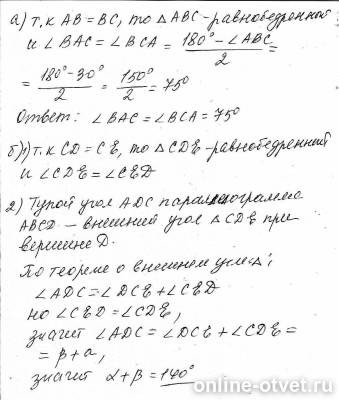 а) т.к АВ = ВС, то △АВС - равнобедренной
и ∠ВАС = ∠ВСА = (180° - ∠АВС)/2 =
= (180° - 30°)/2 = 150°/2 = 75°
Ответ: ∠ВАС = ∠ВСА = 75°
б) 1) т.к CD = CE, то △CDE - равнобедренный
и ∠CDE = ∠CED
2) Тупой угол ADC параллелограмма
ABCD - внешний угол △CDE при
вершине D.
По теореме о внешнем угле △:
∠ADC = ∠DCE + ∠CED
но ∠CED = ∠CDE,
значит ∠ADC = ∠DCE + ∠CDE =
= β + α,
значит α + β = 140°
online-otvet.ru